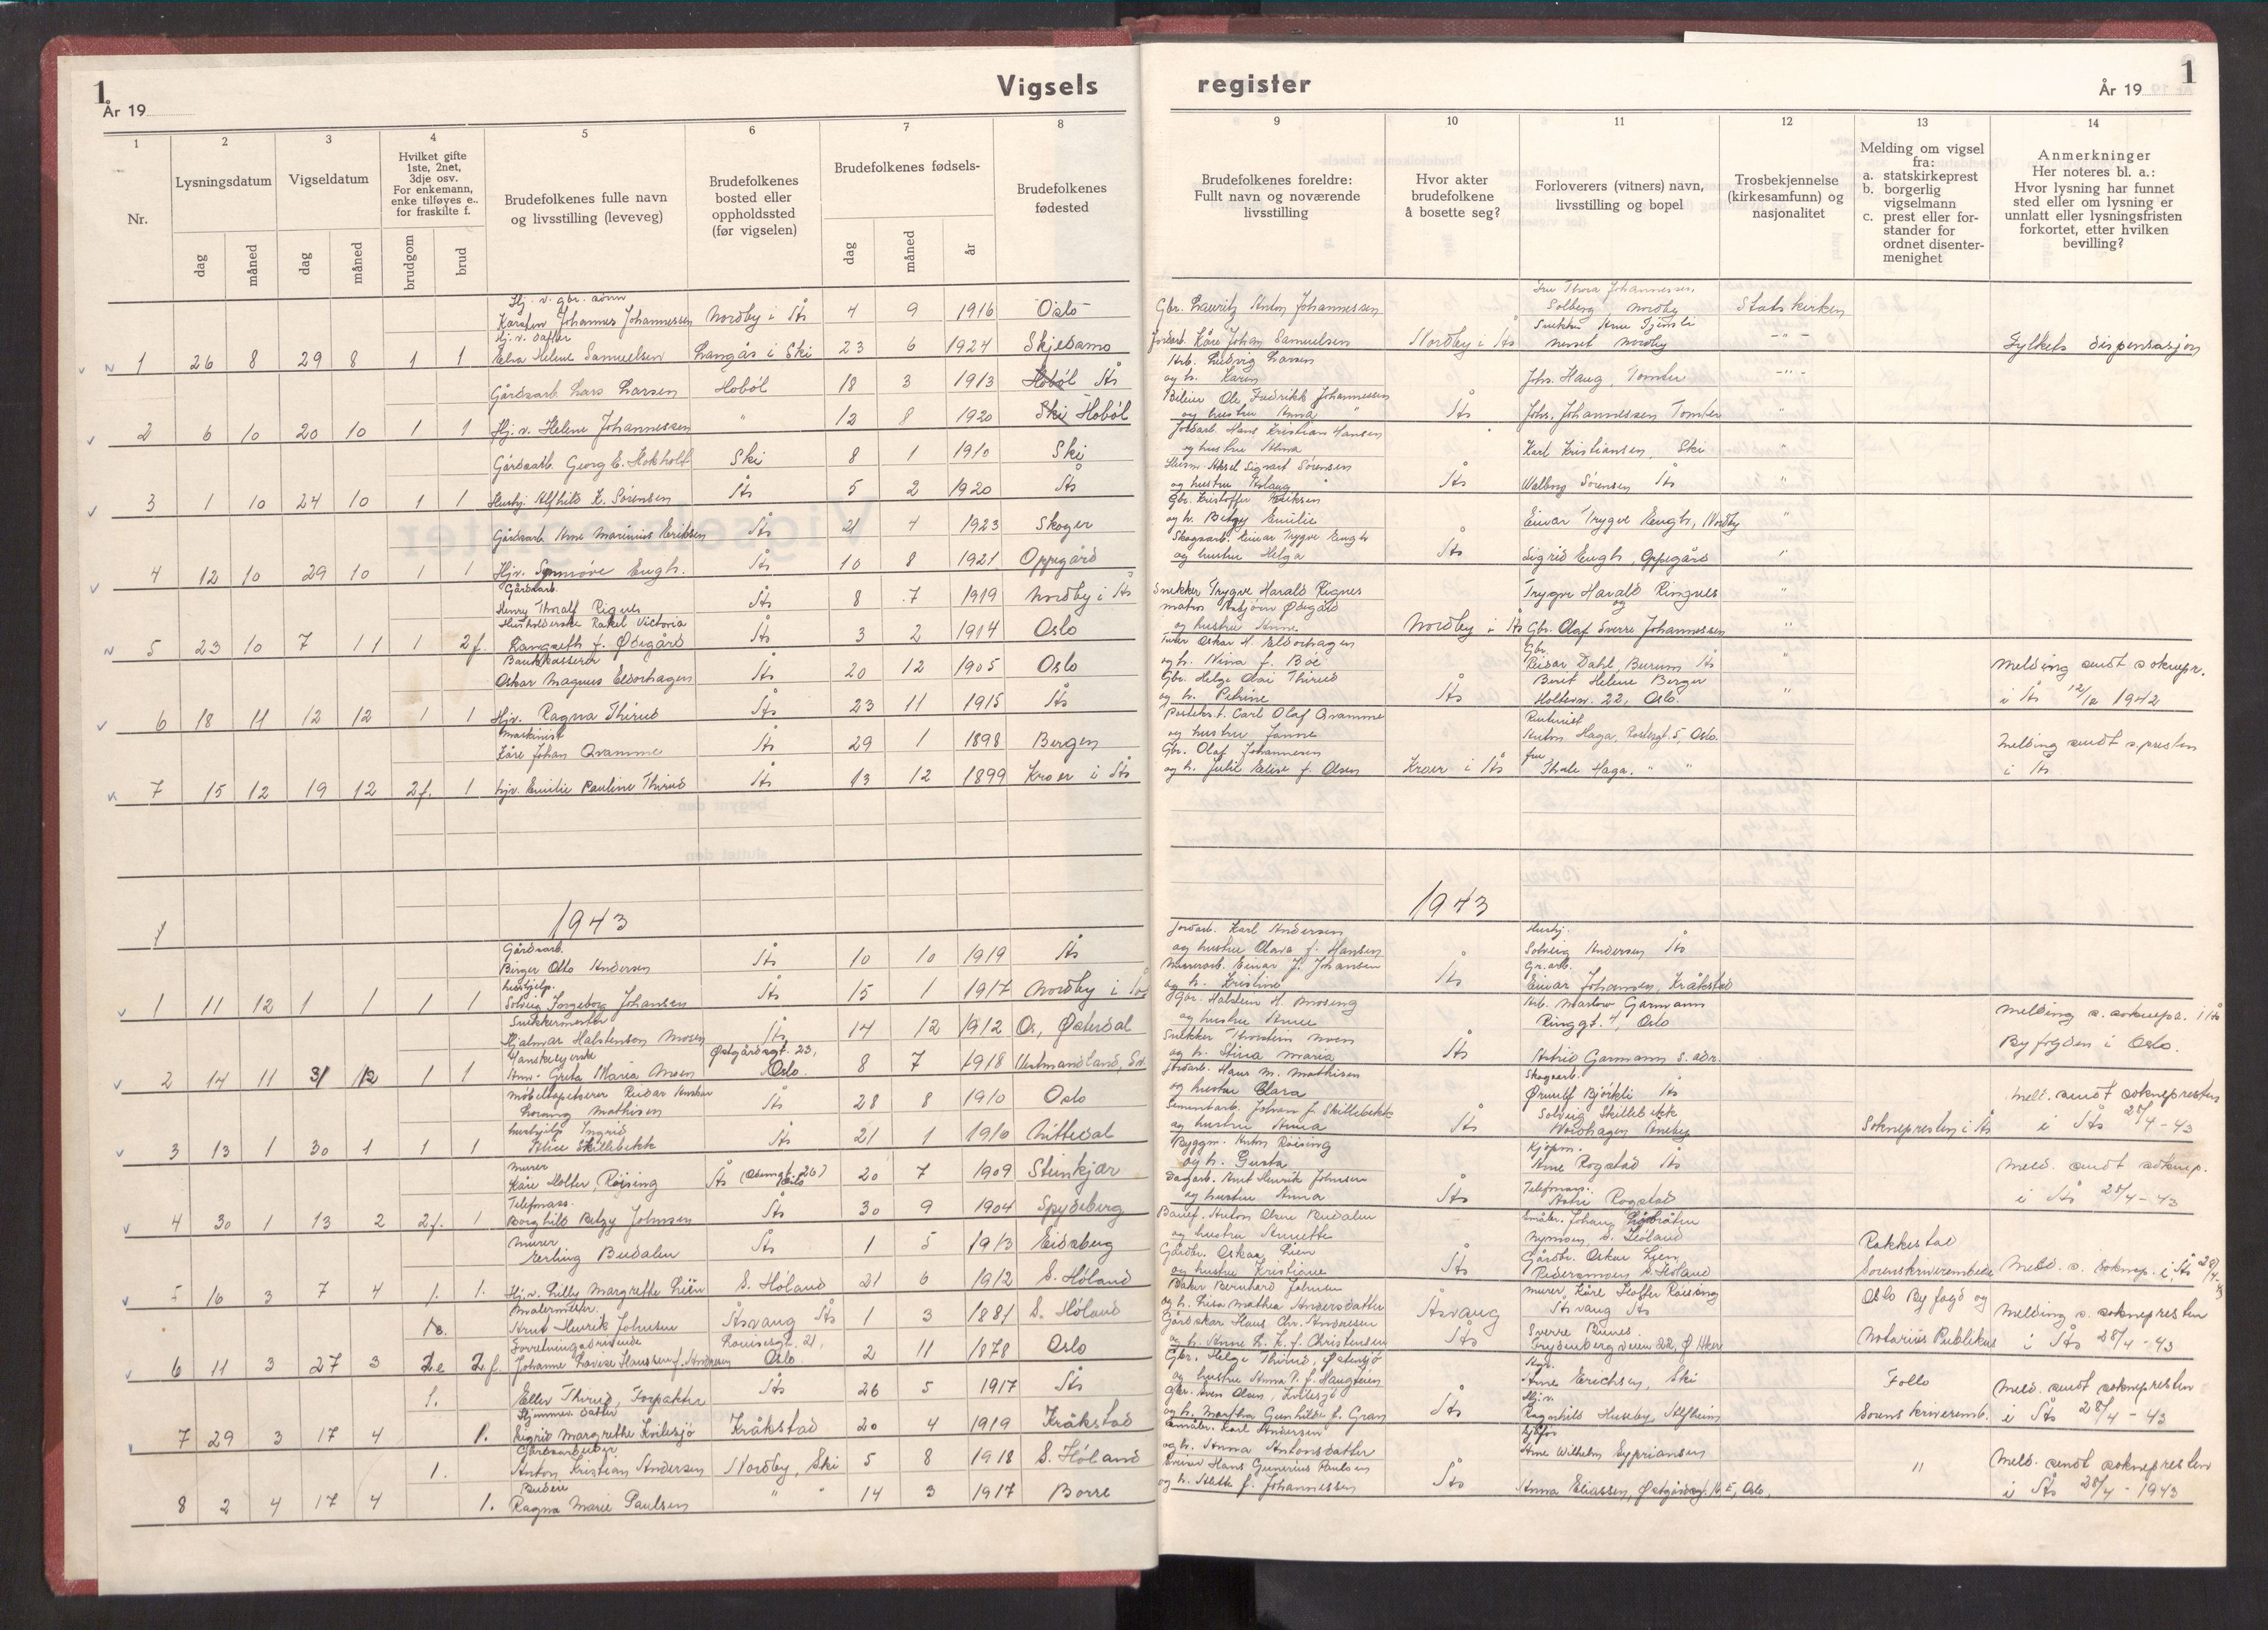 1
År 19
Vigsels
register
År 19
1
1 2 3 4 5 6 7 8
9 10 11 12 13 14
Nr.
Lysningsdatum
dag måned
Vigseldatum
dag måned
Hvilket gifte
1ste, 2net,
3dje osv.
For enkemann,
enke tilføyes e..
for fraskilte f.
brudgom brud
Brudefolkenes fulle navn
og livsstilling (leveveg)
Brudefolkenes
bosted eller
oppholdssted
(før vigselen)
Brudefolkenes fødsels-
dag måned år
Brudefolkenes
fødested
Brudefolkenes foreldre:
Fullt navn og noværende
livsstilling
Hvor akter
brudefolkene
å bosette seg?
Forloverers (vitners) navn,
livsstilling og bopel
Trosbekjennelse
(kirkesamfunn) og
nasjonalitet
Melding om vigsel
fra:
a. statskirkeprest
b. borgerlig
vigselmann
c. prest eller for-
stander for
ordnet disenter-
menighet
Anmerkninger
Her noteres bl. a.:
Hvor lysning har funnet
sted eller om lysning er
unnlatt eller lysningsfristen
forkortet, etter hvilken
bevilling?
Hj. v. gbr. sønn
Karsten Johannes Johannessen Nordby i Ås 4 9 1916 Oslo
Gbr. Lauritz Anton Johannessen
Fru Thora Johannessen,
Solberg, Nordby
Statskirken
Hj. v. datter
1 26 8 29 8 1 1 Elva Helene Samuelsen Langås i Ski 23 6 1924 Skjedsmo
Jordarb. Kåre Johan Samuelsen Nordby i Ås
Snekker Arne
Nesset Nordby
-"-
Fylkets dispensasjon
Gårdsarb. Lars Larsen Hobøl 18 3 1913 Hobøl Ås
Arb. Ludvig Larsen
og h. Karen
Johs. Haug, Tomter
-"-
2 6 10 20 10 1 1 Hj. v. Helene Johannessen " 12 8 1920 Ski Hobøl
Bileier Ole Fredrikk Johannessen
og hustru Anna "
Ås
Johs. Johannessen Tomter
"
Gårdsarb. Georg E. Stokholt Ski 8 1 1910 Ski
Jordarb. Hans Kristian Hansen
og hustru Alma
Karl Kristiansen, Ski
"
3 1 10 24 10 1 1 Hushj. Alfhild K. Sørensen Ås 5 2 1920 Ås
Aksel Sigvart Sørensen
og hustru Aslaug "
Ås
Walborg Sørensen Ås
"
Gårdsarb. Arne Marinius Eriksen Ås 21 4 1923 Skoger
Gbr. Kristoffer Eriksen
og h. Betzy Emilie
Einar Trygve Engh, Nordby
"
4 12 10 29 10 1 1 Hjv. Synnøve Engh. Ås 10 8 1921 Oppegård
Skogsarb. Einar Trygve Engh
og hustru Helga
Ås
Sigrid Engh, Oppegård
"
Gårdsarb.
Henry Thoralf Rignes Ås 8 7 1919 Nordby i Ås
Snekker Trygve Harald Rignes
Trygve Harald Ringnes
og
"
Husholderske Rakel Victoria
5 23 10 7 11 1 2f. Langseth f. Ødegård Ås 3 2 1914 Oslo
Matros Asbjørn Ødegård
og hustru Anne
Nordby i Ås
Gbr. Olaf Sverre Johannessen
"
Bankkasserer
Oskar Magnus Eldorhagen Ås 20 12 1905 Oslo
Oskar M. Eldorhagen
og h. Nina f. Boe
Gbr.
Reidar Dahl, Burum Ås
"
Melding sendt soknepr.
6 18 11 12 12 1 1 Hjv. Ragna Thirud Ås 23 11 1915 Ås
Gbr. Helge Olai Thirud
og h. Petrine
Ås
Berit Helene Berger
Holterv. 22, Oslo.
"
i Ås 12/12 1942
Maskinist
Kåre Johan Qvamme Ås 29 1 1898 Bergen
Carl Olaf Qvamme
og hustru Janna
Anton Haga, 5, Oslo.
Melding sendt s.presten
7 15 12 19 12 2f. 1 hjv. Emilie Pauline Thirud Ås 13 12 1899 Kroer i Ås
Gbr. Olaf Johannesen
og h. Julie Elise f. Olsen
Kroer i Ås
fru
Thale Haga. " "
i Ås
1943
1943
Gårdsarb.
Birger Otto Andersen Ås 10 10 1919 Ås
Jordarb. Karl Andersen
og hustru Olava f. Hansen
Ås
Hushj.
Solveig Andersen Ås
hushjelp.
1 11 12 1 1 1 1 Solveig Ingeborg Johansen Ås 15 1 1917 Nordby i Ås
Einar J. Johansen
og h. Kristine
Ås
Gr. arb.
Einar Johansen, Kråkstad
Snekkermester
Hjalmar Halstenson Mosen Ås 14 12 1912 Os, Østerdal
Gbr. Halsten H. Moseng
og hustru Anne
Arb. Marlow Garmann
Ringgt. 4, Oslo
Melding s. soknepr. i Ås
Hanskesyerske
2 14 11 31 12 1 1 Ann-Greta Maria Moen Østgårdsgt. 23, Oslo. 8 7 1918 Vestmandland, Sv.
Snekker Thorstein Moen
og h. Stina Maria
Ås
Astrid Garmann s. adr.
Byfogden i Oslo.
Møbeltapetserer Reidar
Mathisen Ås 28 8 1910 Oslo
Jordarb. Hans M. Mathisen
og hustru Clara
Skogsarb.
Ørnulf Bjørkli Ås
Meld. sendt soknepresten
hushjelp Ingrid
3 13 1 30 1 1 1 Alice Skillebekk Ås 21 1 1910 Hitterdal
Sementarb. Johan J. Skillebekk
og hustru Anna
Ås
Solveig Skillebekk
Soknepresten i Ås
i Ås 28/4-43
Murer
Kåre Holter Røising Ås 20 7 1909 Steinkjer
Byggm. Anton Røising
og h. Gusta
Kjøpm.
Arne Rogstad Ås
Meld. sendt soknep.
Telefonass.
4 30 1 13 2 2f. 1 Borghild Betzy Johnsen Ås 30 9 1904 Spydeberg
Dagarb. Knut Henrik Johnsen
og hustru Anna
Ås
Telefonass.
Astri Rogstad
i Ås 28/4-43
Murer
Erling Budalen Ås 1 5 1913 Eidsberg
Anton Olsen Budalen
og hustru Annette
Nymoen, S. Høland
Rakkestad
5 16 3 7 4 1. 1. Hj. v. Lilly Margrethe Lien S. Høland 21 6 1912 S. Høland
Gårdbr. Oskar Lien
og hustru Kristiane
Ås
Gårdbr. Oskar Lien
Pedersmoen S. Høland
Sorenskriverembede
Meld. s. soknep. i Ås 28/4 43
Malermester.
Knut Henrik Johnsen Åsvang Ås 1 3 1881 S. Høland
Baker Bernhard Johnsen
og h. Lisa Mathea Andersdatter
Åsvang
Murer Kåre Holter Røising
Åsvang Ås
Oslo Byfogd og
Melding s. soknepresten
Forretningsdrivende
6 11 3 27 3 2e 2f Johanne Lovise Hanssen f. Andresen Louisesgt. 21, Oslo. 2 11 1878 Oslo
Gårdskar Hans Chr. Andresen
og h. Anne L. K. f. Christensen
Ås
Sverre Bunes.
22, Ø. Aker
Notarius Publikus
i Ås 28/4-43
1. Ellev Thirud, Forpakter Ås 26 5 1917 Ås
Gbr. Helge Thirud, Østensjø
og hustru Anna P. f. Haugteien
Arne Erichsen, Ski
Follo
Meld. sendt soknepresten
Hjemmev. datter
7 29 3 17 4 1. Sigrid Margrethe Kvilesjø Kråkstad 20 4 1919 Kråkstad
Gbr. Sven Olsen, Kvilesjø
og h. Martha Gunhilde f. Gran
Ås
Hj. v.
Ragnhild Huseby, Alfheim
Sorenskriveremb.
i Ås 28/4-43
Gårdsarbeider
1. Anton Kristian Andersen Nordby, Ski 5 8 1918 S. Høland
Karl Andersen
og h. Anna Antonsdatter
Sjåfør
Arne Wilhelm Syprianssen
"
Meld. sendt soknepresten
Budeie
8 2 4 17 4 1. Ragna Marie Paulsen " " 14 3 1917 Borre
Hans Gunerius Paulsen
og h. Aleth f. Johannessen
Ås
Anna Eliassen, Oslo.
i Ås 28/4-1943